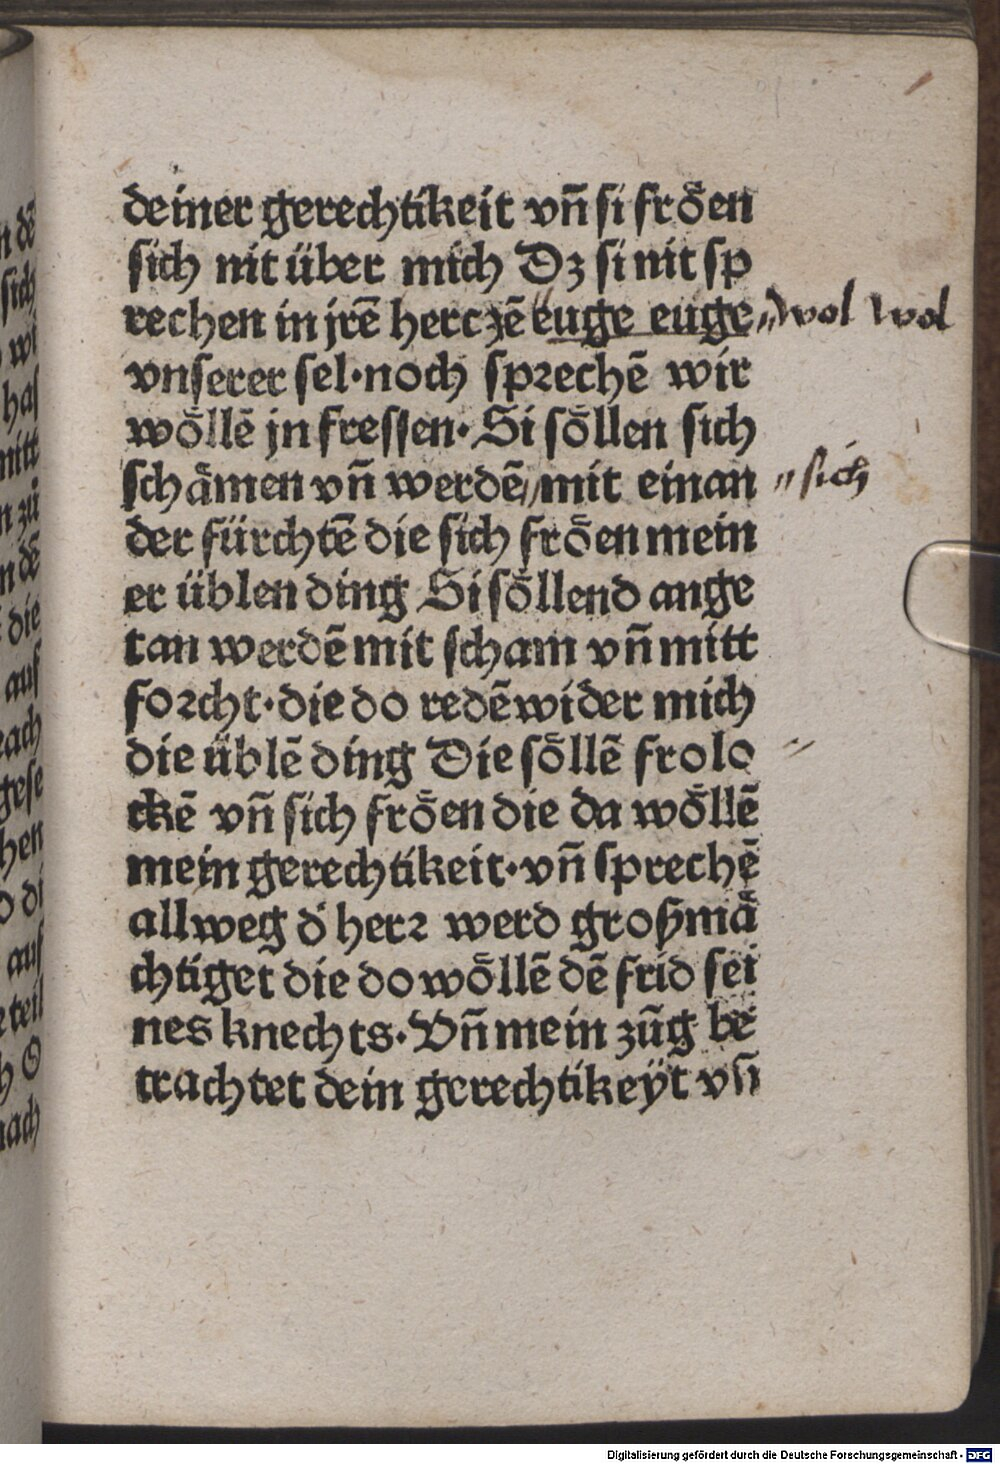 deiner gerechtikeit vñ si frͦoen
sich nit über mich Dz si nit sp
rechen in jrē herczē euge euge „wol wol
vnserer sel·noch sprechē wir
wöllē jn fressen· Si söllen sich
schämen vñ werdē„mit einan „sich
der fürchtē die sich fröen mein
er üblen ding Si söllend ange
tan werdē mit scham vñ mitt
forcht·die do redē wider mich
die üblē ding Die söllē frolo
ckē vñ sich fröen die da wöllē
mein gerechtikeit·vñ sprechē
allweg d̕ herr werd großmä
chtiget die do wöllē dē frid sei
nes knechts·Vñ mein zūg be
trachtet dein gerechtikeÿt vñ
n dē
sich
wi
haſ
mitt
n zü
n dē
die
auf
each
gese
hen
di
auf
teil
h O
nach
Digitalisierung gefördert durch die Deutsche Forschungsgemeinschaft - DFG